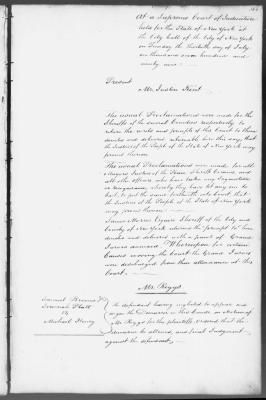 At a Supreme Court of Judicature
held for the State of New York at
the City Hall of the City of New York
on Tuesday the thirtieth day of July
one thousand seven hundred and
ninety nine
Present
Mr. Justice Kent
The usual Proclamations were made for the
Sheriffs of the several Counties respectively to
whom the writs and precepts of this Court to them
directed and delivered returnable on this day that
the Justices of the People of the State of New York may
proceed thereon.
The usual Proclamations were made for all
Mayors Justices of the Peace Sheriffs Coroners and
all other officers who have taken any Inquisitions
or recognizances, whereby they have let any one to
bail, to put the same forthwith into Court that
the Justices of the People of the State of New York
may proceed thereon.
James Morris Esquire Sheriff of the City and
County of New York returned the precept to him
directed and delivered with a panel of Grand
Jurors annexed Whereupon for certain
Causes moving the Court the Grand Jurors
were discharged from their attendance at this
Court.
Mr. Riggs
Samuel Browne
Jeremiah Platt
vs
Michael Henry
The defendant having neglected to appear and
argue the Demurrer in this Cause on Motion of
Mr. Riggs for the plaintiffs Ordered that the
Demurrer be allowed, and final Judgment
against the defendant.